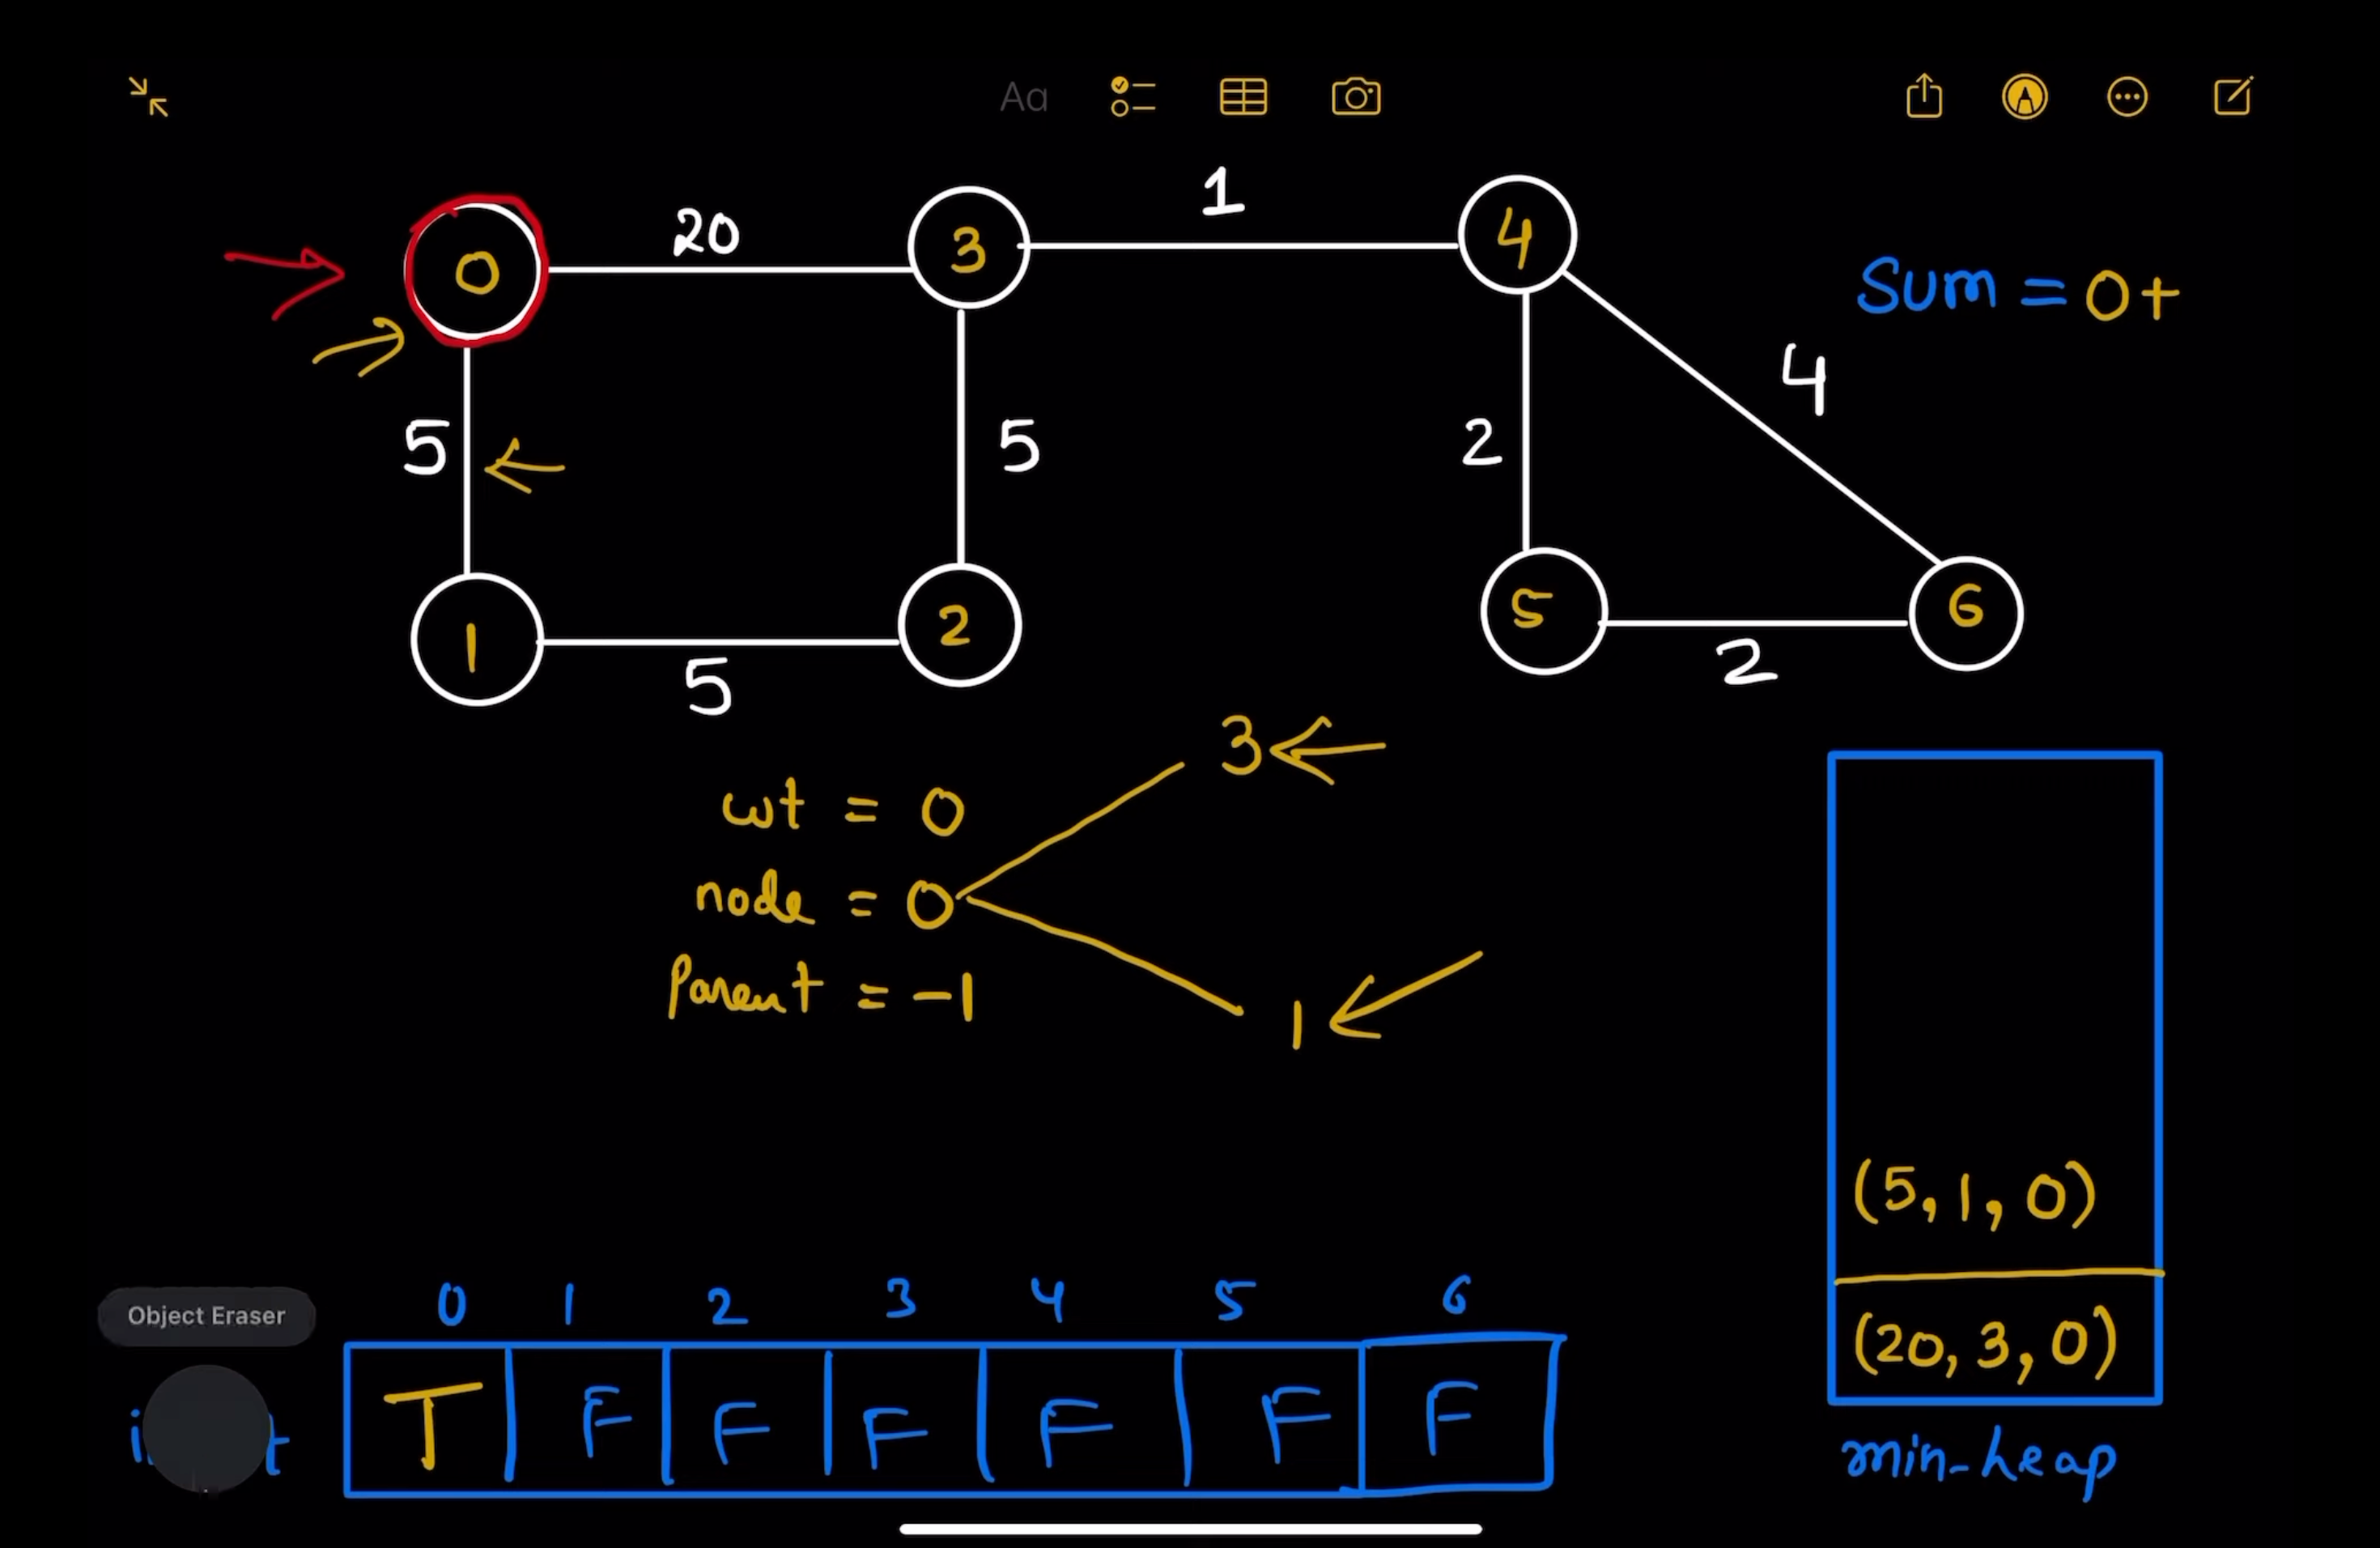 Aa
1
20
0
3
4
Sum = 0+
4
5
5
2
1
2
5
6
5
2
3
wt = 0
node = 0
Parent = -1
1
(5, 1, 0)
(20, 3, 0)
min-heap
Object Eraser
0 1 2 3 4 5 6
T F F F F F F